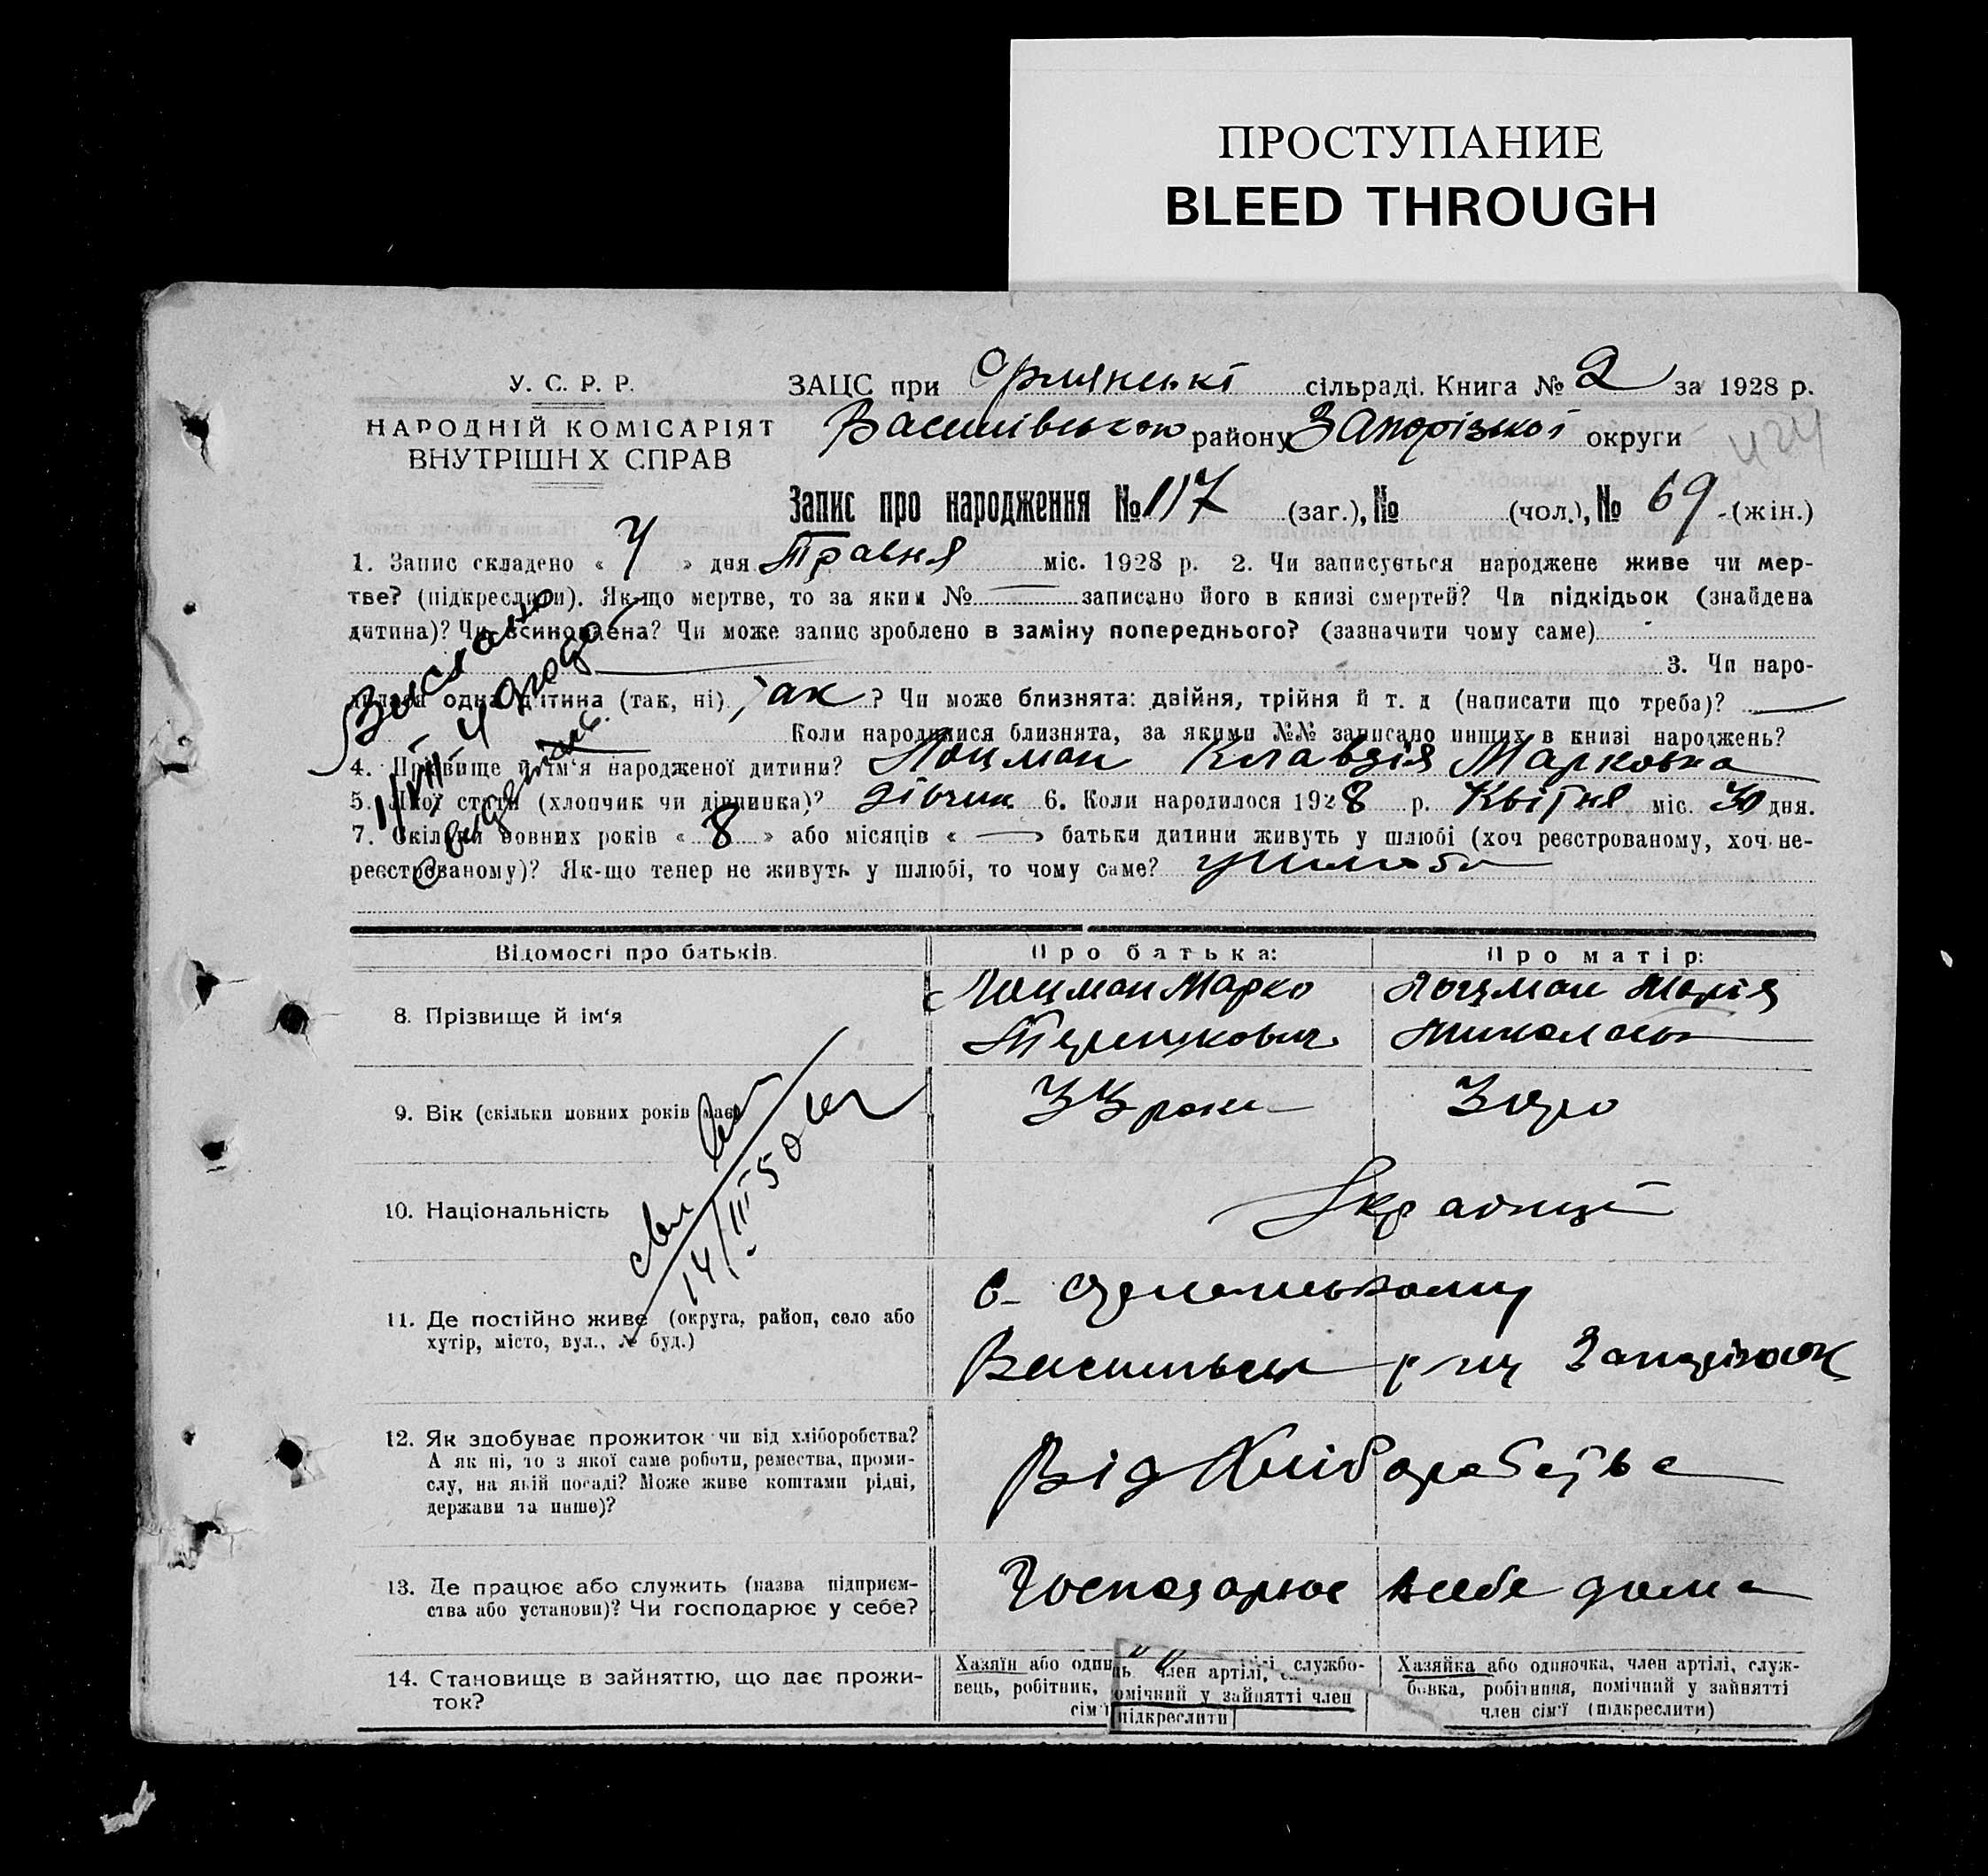 ПРОСТУПАНИЕ
BLEED THROUGH
У. С. Р. Р.
НАРОДНІЙ КОМІСАРІЯТ
ВНУТРІШН Х СПРАВ
ЗАЦС при сільраді. Книга № 2 за 1928 р.
Василівського району Запорізької округи
424
Запис про народження № 117 (заг.), № (чол.), № 69 (жін.)
1. Запис складено « » дня Травня міс. 1928 р. 2. Чи записується народжене живе чи мер-
тве? (підкреслити). Як-що мертве, то за яким № записано його в книзі смертей? Чи підкідьок (знайдена
дитина)? Чи всиновлена? Чи може запис зроблено в заміну попереднього? (зазначити чому саме)
3. Чи наро-
дилася одна дитина (так, ні) так ? Чи може близнята: двійня, трійня й т. д (написати що треба)?
Коли народилися близнята, за якими №№ записано инших в книзі народжень?
4. Прізвище й ім'я народженої дитини? Лоцман Клавдія Марковна
5. Якої стати (хлопчик чи дівчинка)? дівчик 6. Коли народилося 1928 р. Квітня міс. 30 дня.
7. Скільки повних років « 8 » або місяців « — » батьки дитини живуть у шлюбі (хоч реєстрованому, хоч не-
реєстрованому)? Як-що тепер не живуть у шлюбі, то чому саме? у шлюбі
Відомості про батьків. Про батька: Про матір:
8. Прізвище й ім'я Лоцман Марко Лоцман Марія
9. Вік (скільки повних років має) 33 роки
10. Національність Українці
14/III 50
11. Де постійно живе (округа, район, село або
хутір, місто, вул., № буд.)
12. Як здобуває прожиток чи від хліборобства?
А як ні, то з якої саме роботи, ремества, проми-
слу, на якій посаді? Може живе коштами рідні,
держави та инше)?
Від Хліборобства
13. Де працює або служить (назва підприєм-
ства або установи)? Чи господарює у себе?
Господарює в себе дома
14. Становище в зайняттю, що дає прожи-
ток?
Хазяїн або один ь член артілі, службо-
вець, робітник, омічний у зайнятті член
сім'ї підкреслити
Хазяйка або одиночка, член артілі, служ-
бовка, робітниця, помічний у зайнятті
член сім'ї (підкреслити)